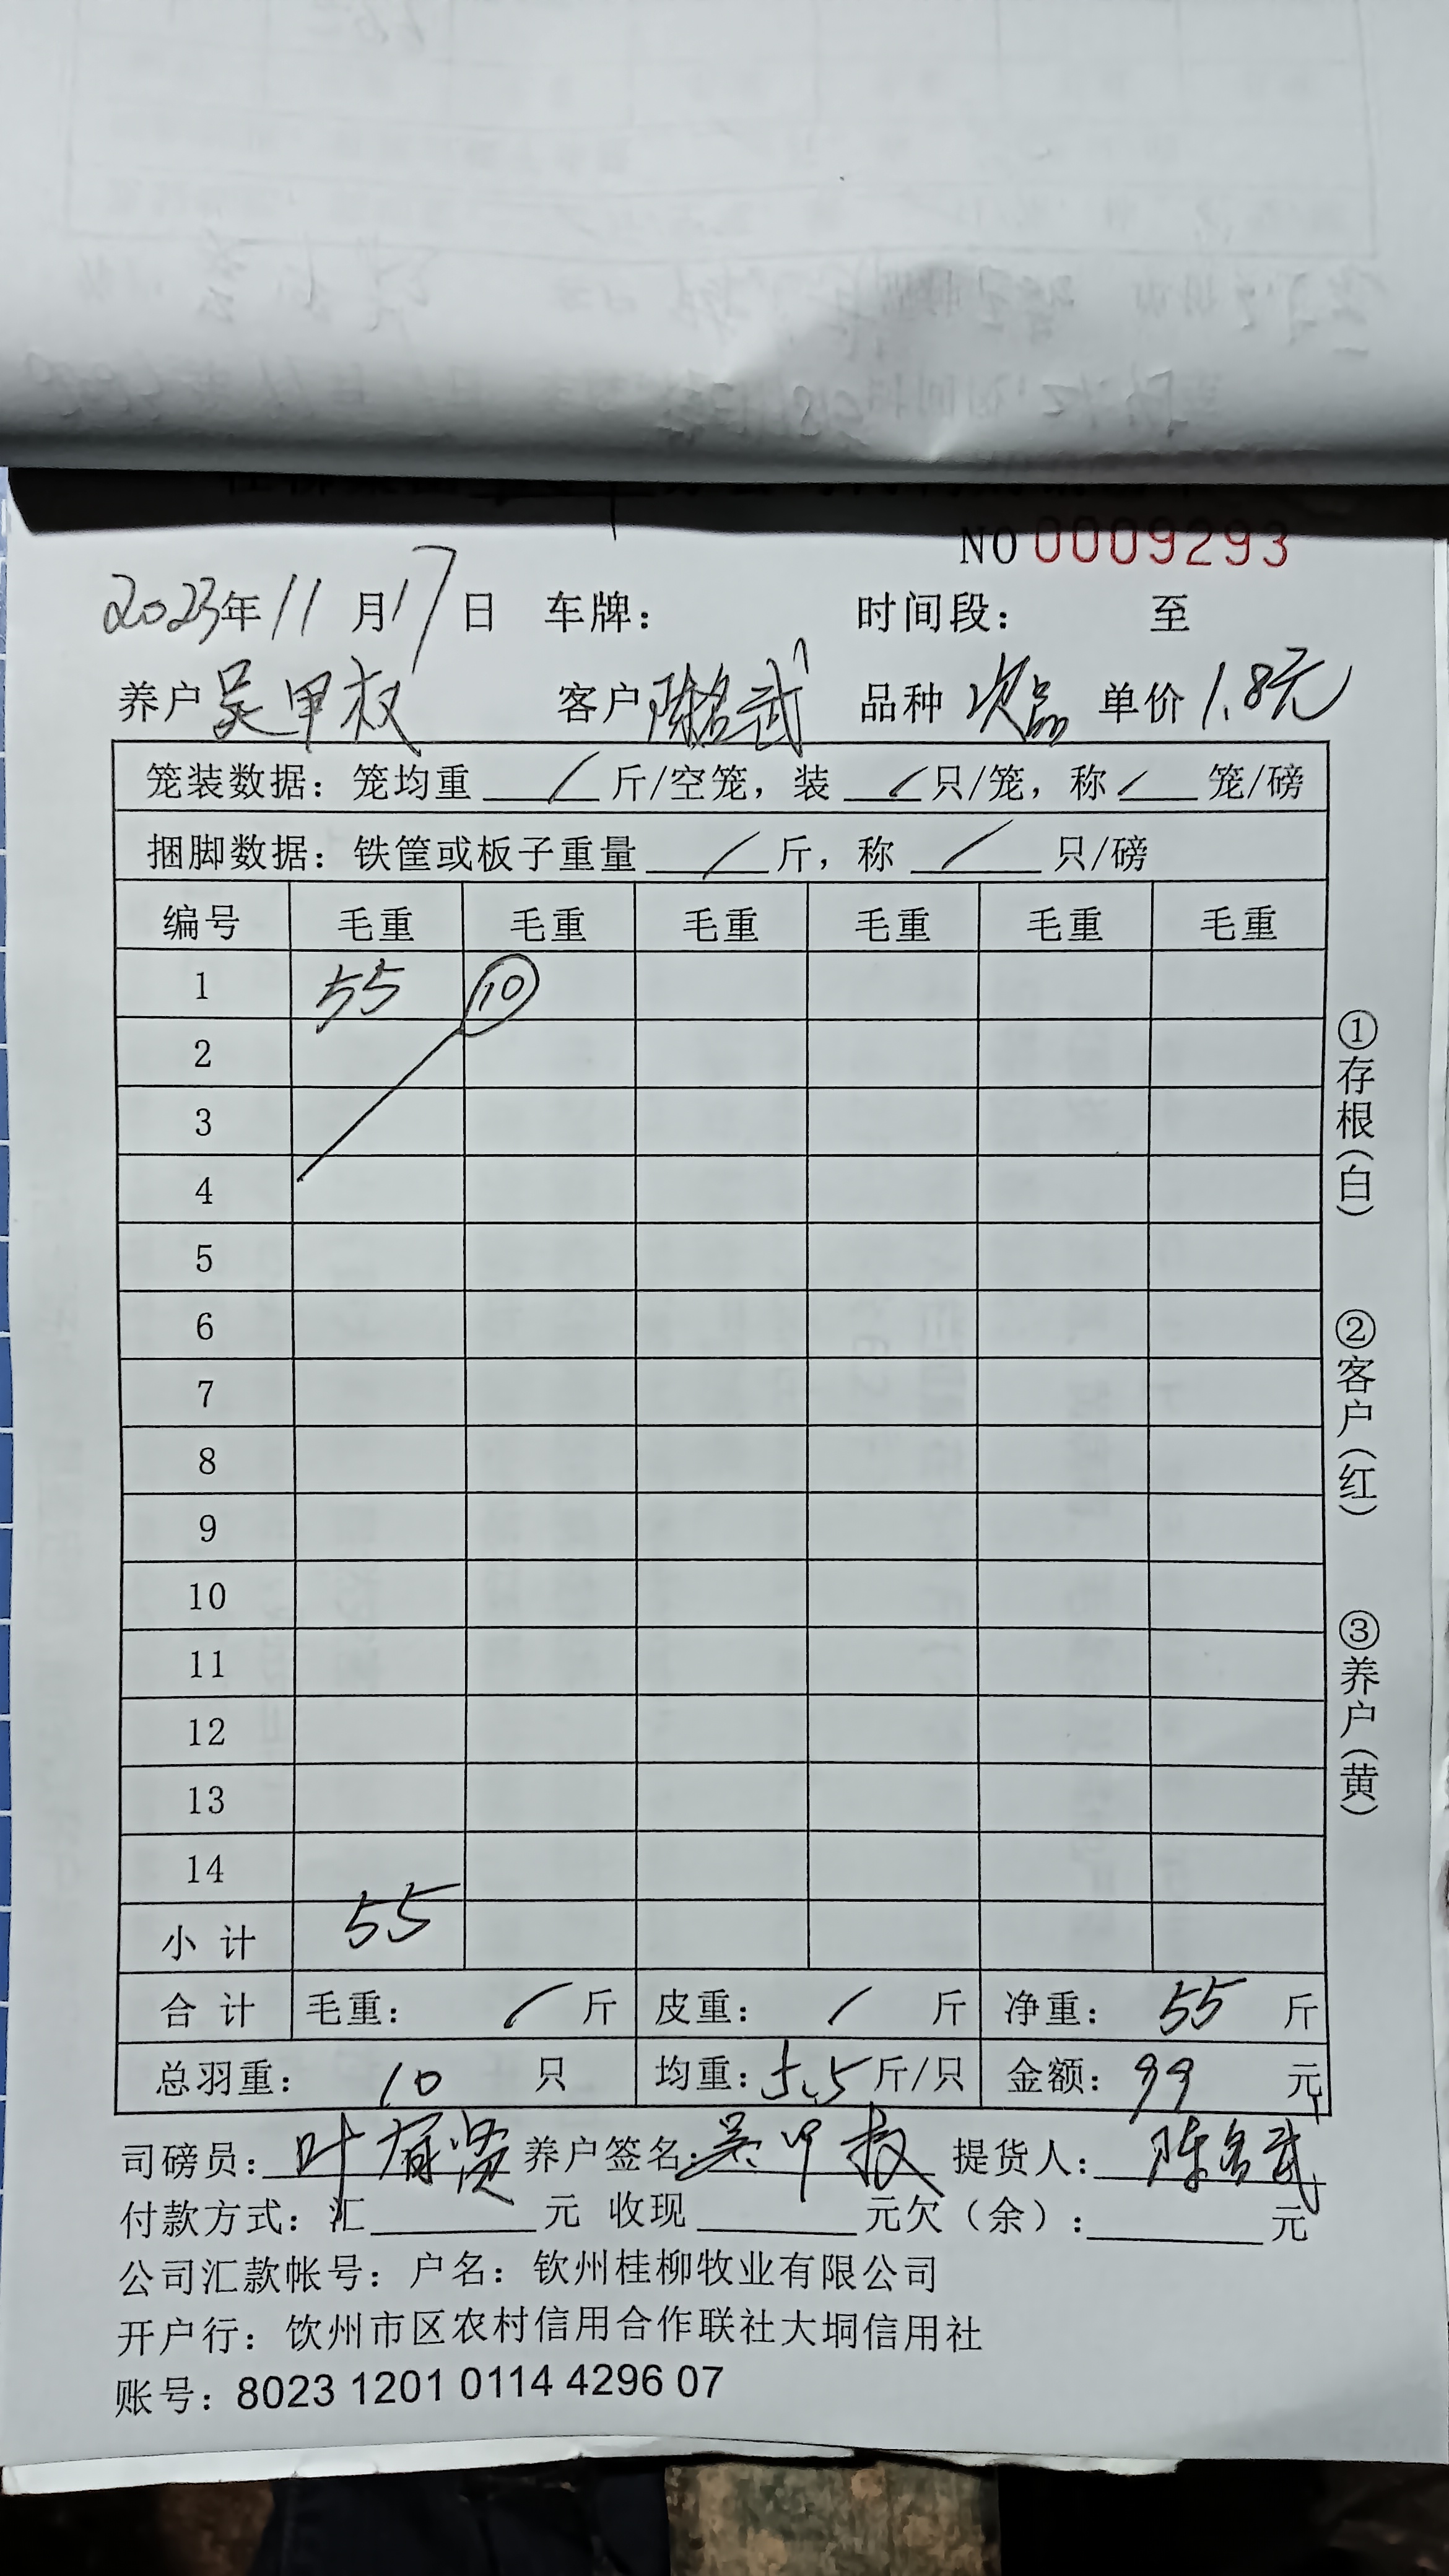 NO 0009293
2023年11月17日 车牌： 时间段： 至
养户 吴甲权 客户 陈名武 品种 次品 单价 1.8元
笼装数据：笼均重 / 斤/空笼，装 / 只/笼，称 / 笼/磅
捆脚数据：铁筐或板子重量 / 斤，称 / 只/磅
编号 毛重 毛重 毛重 毛重 毛重 毛重
1 55 10
2
3
4
5
6
7
8
9
10
11
12
13
14
小计 55
合计 毛重： / 斤 皮重： / 斤 净重： 55 斤
总羽重： 10 只 均重：5.5斤/只 金额：99 元
司磅员：叶 贤 养户签名：吴甲权 提货人：陈名武
付款方式：汇 元 收现 元欠（余）： 元
公司汇款帐号：户名：钦州桂柳牧业有限公司
开户行：饮州市区农村信用合作联社大垌信用社
账号：8023 1201 0114 4296 07
①存根（白）
②客户（红）
③养户（黄）